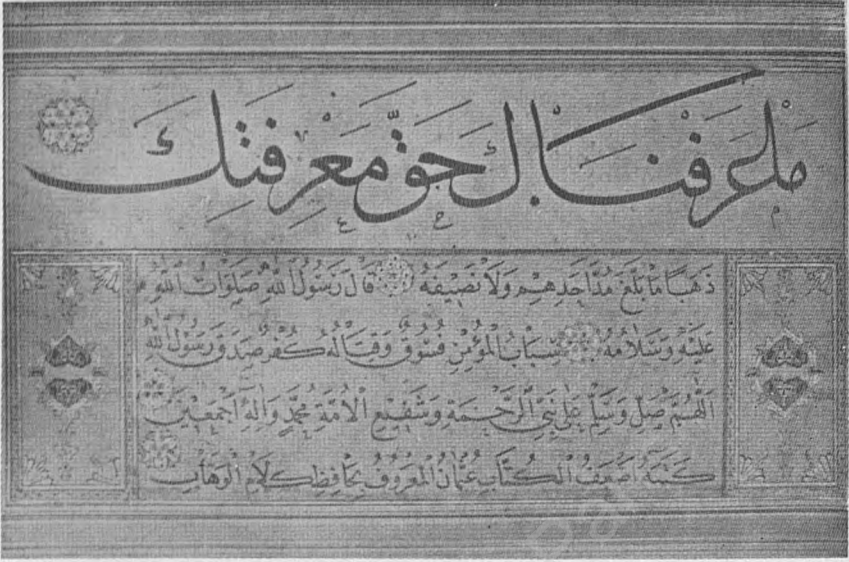 ما عرفناك حق معرفتك
ذَهَبًا مَا بَلَغَ مُدَّ اَحَدِهِمْ وَلَا نَصِيفَهُ قَالَ رَسُولُ اللّٰهِ صَلَوَاتُ اللّٰهِ
عَلَيْهِ وَسَلَامُهُ سِبَابُ الْمُؤْمِنِ فُسُوقٌ وَقِتَالُهُ كُفْرٌ صَدَقَ رَسُولُ اللّٰهِ
اَللّٰهُمَّ صَلِّ وَسَلِّمْ عَلٰى نَبِيِّ الرَّحْمَةِ وَشَفِيعِ الْاُمَّةِ مُحَمَّدٍ وَاٰلِهِ اَجْمَعِينَ
كَتَبَهُ اَضْعَفُ الْكُتَّابِ عُثْمَانُ الْمَعْرُوفُ بِحَافِظِ كَلَامِ الْوَهَّابِ